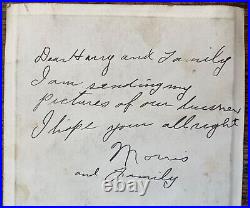 Dear Harry and Family
I am sending my
pictures of our
I hope your allright
Morris
and Family